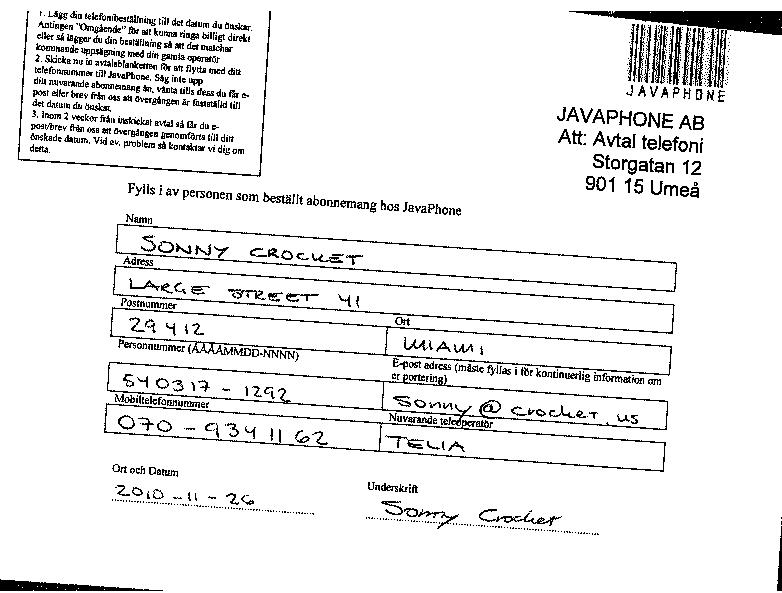 1. Lägg din telefonibeställning till det datum du önskar.
Antingen "Omgående" för att kunna ringa billigt direkt
eller så lägger du din beställning så att det matchar
kommande uppsägning med din gamla operatör
2. Skicka nu in avtalsblanketten för att flytta med ditt
telefonnummer till JavaPhone. Säg inte upp
ditt nuvarande abonnemang än, vänta tills dess du får e-
post eller brev från oss att övergången är fastställd till
det datum du önskat.
3. Inom 2 veckor från inskickat avtal så får du e-
post/brev från oss att övergången genomförts till ditt
önskade datum. Vid ev. problem så kontaktar vi dig om
detta.
JAVAPHONE
JAVAPHONE AB
Att: Avtal telefoni
Storgatan 12
901 15 Umeå
Fylls i av personen som beställt abonnemang hos JavaPhone
Namn
SONNY CROCKET
Adress
LARGE STREET 41
Postnummer
29412
Ort
MIAMI
Personnummer (ÅÅÅÅMMDD-NNNN)
540317-1292
E-post adress (måste fyllas i för kontinuerlig information om
er portering)
Sonny@crocket.us
Mobiltelefonnummer
070-9341162
Nuvarande teleoperatör
TELIA
Ort och Datum
2010-11-26
Underskrift
Sonny Crocket